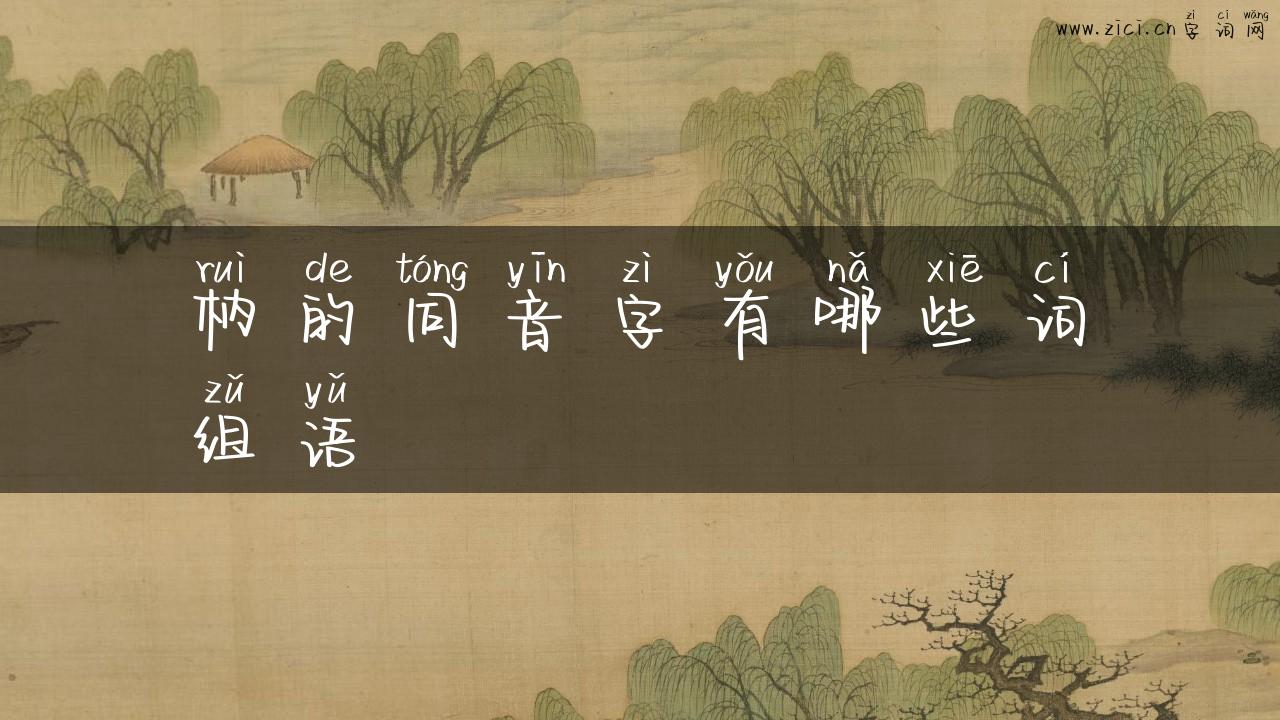 zì cí wǎng
www.zici.cn 字词网
ruì de tóng yīn zì yǒu nǎ xiē cí
枘的同音字有哪些词
zǔ yǔ
组语